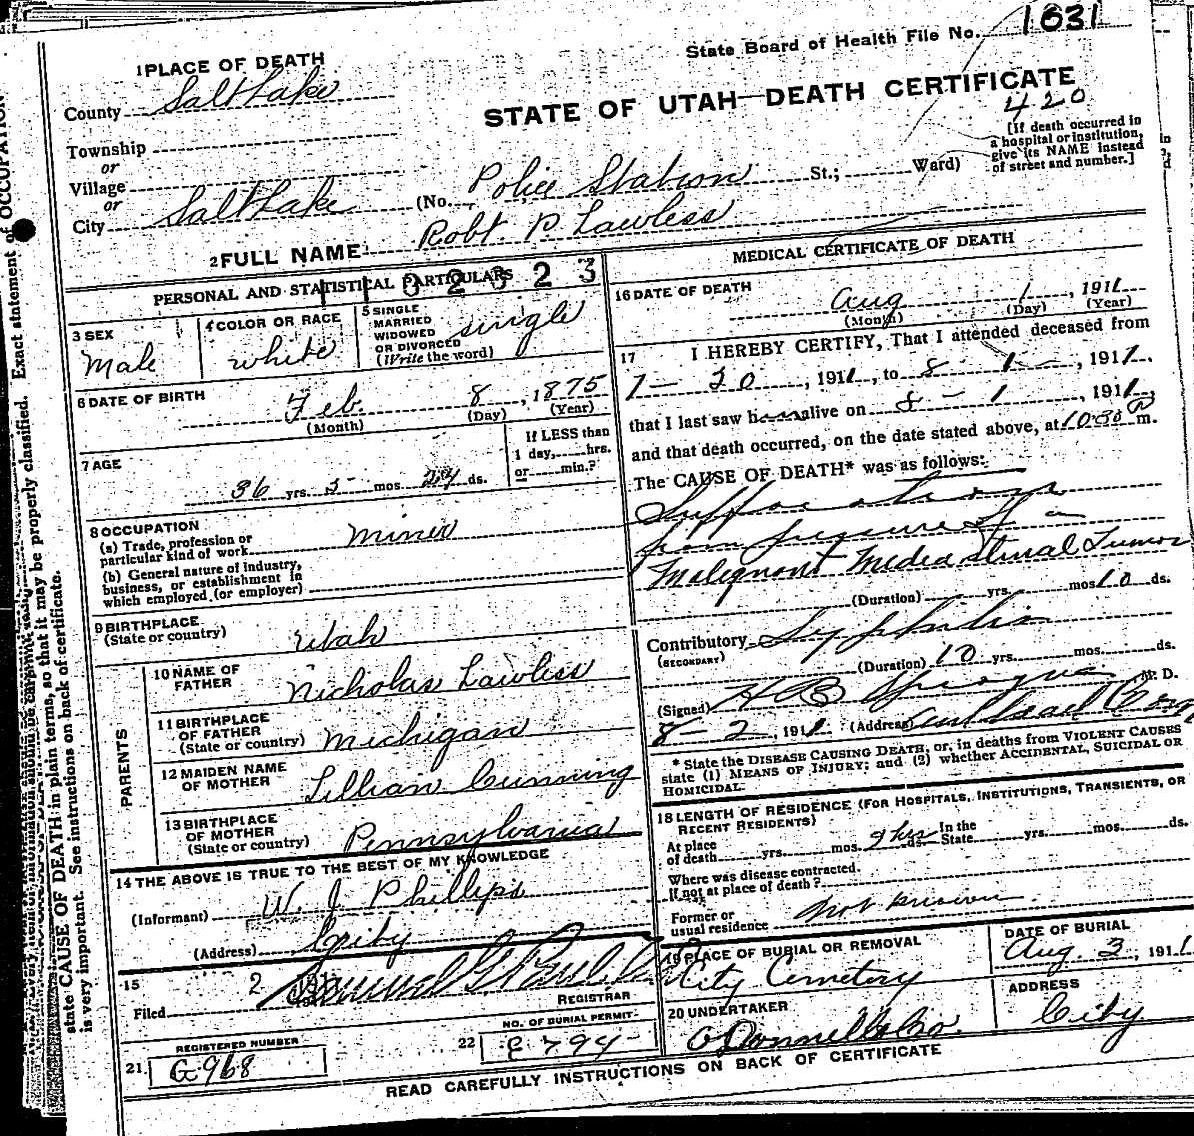 State Board of Health File No. 1631
1 PLACE OF DEATH
County Salt Lake
STATE OF UTAH—DEATH CERTIFICATE
420
[If death occurred in
a hospital or institution,
give its NAME instead
of street and number.]
Township
or
Village
or
City Salt Lake (No. Police Station St.; Ward)
2 FULL NAME Robt. P. Lawless
PERSONAL AND STATISTICAL PARTICULARS
3 SEX
Male
4 COLOR OR RACE
White
5 SINGLE
MARRIED
WIDOWED
OR DIVORCED
(Write the word)
Single
6 DATE OF BIRTH
Feb. 8, 1875
(Month) (Day) (Year)
7 AGE
36 yrs. 5 mos. 24 ds.
If LESS than
1 day, hrs.
or min.?
8 OCCUPATION
(a) Trade, profession or
particular kind of work Miner
(b) General nature of industry,
business, or establishment in
which employed (or employer)
9 BIRTHPLACE
(State or country) Utah
PARENTS
10 NAME OF
FATHER Nicholas Lawless
11 BIRTHPLACE
OF FATHER
(State or country) Michigan
12 MAIDEN NAME
OF MOTHER Lillian
13 BIRTHPLACE
OF MOTHER
(State or country) Pennsylvania
14 THE ABOVE IS TRUE TO THE BEST OF MY KNOWLEDGE
(Informant) W. J. Phillips
(Address) City
15
Filed 2
REGISTRAR
REGISTERED NUMBER
21 G 968
22 NO. OF BURIAL PERMIT
MEDICAL CERTIFICATE OF DEATH
16 DATE OF DEATH
Aug 1, 1911
(Month) (Day) (Year)
17 I HEREBY CERTIFY, That I attended deceased from
, 1911, to 8 - 1 -, 1911,
that I last saw h alive on 8 - 1, 1911,
and that death occurred, on the date stated above, at 10:30 m.
The CAUSE OF DEATH* was as follows:
Suffocation
from pressure of a
Malignant Mediastinal Tumor
(Duration) yrs. mos 10 ds.
Contributory Syphilis
(SECONDARY)
(Duration) 10 yrs. mos. ds.
(Signed) H B Sprague M. D.
8 - 2, 1911 (Address)
* State the DISEASE CAUSING DEATH, or, in deaths from VIOLENT CAUSES
state (1) MEANS OF INJURY; and (2) whether ACCIDENTAL, SUICIDAL OR
HOMICIDAL.
18 LENGTH OF RESIDENCE (FOR HOSPITALS, INSTITUTIONS, TRANSIENTS, OR
RECENT RESIDENTS)
At place
of death yrs. mos. 9 hrs ds. In the
State yrs. mos. ds.
Where was disease contracted.
If not at place of death?
Former or
usual residence not known
19 PLACE OF BURIAL OR REMOVAL
City Cemetery
DATE OF BURIAL
Aug. 3, 1911
20 UNDERTAKER
O'Donnell & Co.
ADDRESS
City
READ CAREFULLY INSTRUCTIONS ON BACK OF CERTIFICATE
Exact statement of OCCUPATION
state CAUSE OF DEATH in plain terms, so that it may be properly classified.
is very important. See instructions on back of certificate.